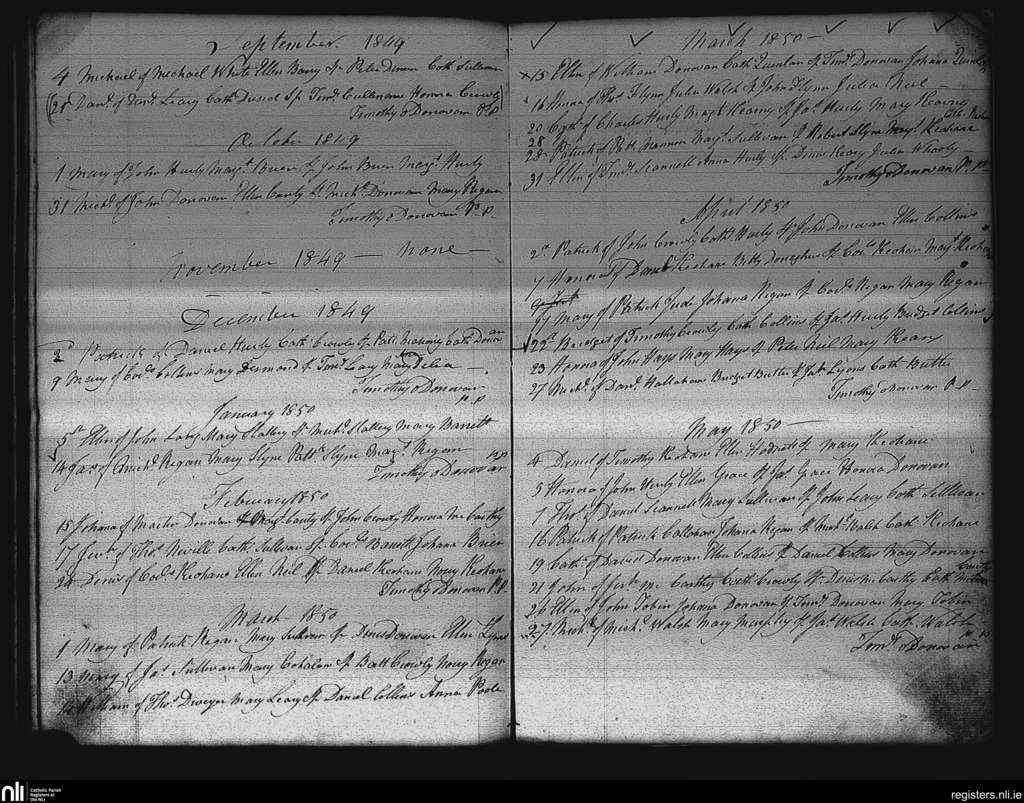 September 1849
4 Michael of Michael White Ellen Barry Sp Peter Dineen Cath Sullivan
Danl. of Danl. Leary Cath. Sp Timy. Cullenane Honora Crowly
Timothy O Donovan P.P.
October 1849
1 Mary of John Hurly Margt. Brien Sp John Brien Margt. Hurly
31 Michl. of John Donovan Ellen Canty Sp Michl. Donovan Mary Regan
Timothy O Donovan P.P.
November 1849 — None —
December 1849
2d Patrick of Daniel Hurly Cath Crowly Sp Patt Mahony Cath Donovan
9 Mary of Cors. Collins Mary Desmond Sp Timy. Leary Mary
Timothy O Donovan
P.P.
January 1850
5th Ellen of John Long Mary Slattery Sp Michl. Slattery Mary Barrett
14 Jas. of Michl. Regan Mary Slyne Pattk. Slyne Margt. Regan
Timothy O Donovan P.P.
February 1850
15 Johana of Martin Donovan Margt. Canty Sp John Crowly Honora McCarthy
17 of Thos. Neville Cath. Sullivan Sp Cors. Barrett Johana Brien
24 Denis of Cors. Keohane Ellen Neil Sp Daniel Keohane Nancy Keohane
Timothy O Donovan P.P.
March 1850
1 Mary of Patrick Regan Mary Sullivan Sp Denis Donovan Ellen Lyons
13 Mary of Jas. Sullivan Mary Cohalan Sp Batt Crowly Noney Regan
14 William of Thos. Dwyer Mary Leary Sp Daniel Collins Anna Poole
March 1850 —
15 Ellen of William Donovan Cath Quinlan Sp Timy. Donovan Johana Quinlan
16 Hanna of Thos. Flynn Julia Walsh Sp John Flynn Julia Neil —
20 Cath. of Charles Hurly Margt. Kearny Sp Jas. Hurly Mary Kearny
28 Patrick of Margt. Sullivan Sp Robert Slyne Margt. Keohane
31 Ellen of Timy. Scannell Anna Hurly Sp Denis Keary Julia Whooly —
Timothy O Donovan P.P.
April 1850
2d Patrick of John Crowly Cath. Hurly Sp John Donovan Ellen Collins
7 Honora of Daniel Keohane Betty Donoghue Sp Cors. Keohane Margt. Keohane
17 Mary of Patrick Jude Johana Regan Sp Cors. Regan Mary Regan
22d Bridget of Timothy Crowly Cath. Collins Sp Jas. Hurly Bridget Collins
23 Honora of John Hays Mary Hays Sp Peter Neil Mary Keary
27 Michl. of Danl. Hallahan Bridget Butler Sp Jas. Lyons Cath Butler
Timothy O Donovan P.P.
May 1850 —
4 Daniel of Timothy Keohane Ellen Sp Mary Keohane
5 Honora of John Hurly Ellen Grace Sp Jas. Grace Honora Donovan
7 Thos. of Daniel Scannell Mary Sullivan Sp John Leary Cath Sullivan
16 Patrick of Patrick Callanan Johana Regan Sp Michl. Walsh Cath. Keohane
19 Cath. of David Donovan Ellen Collins Sp Daniel Collins Mary Donovan
21 John of McCarthy Cath Crowly Sp Denis McCarthy Cath McCarthy
26 Ellen of John Tobin Johana Donovan Sp Timy. Donovan Mary Tobin
27 Michl. of Michl. Walsh Mary Murphy Sp Jas. Walsh Cath. Walsh
P.P.
Timy. O Donovan
nli
Catholic Parish
Registers at
the NLI
registers.nli.ie